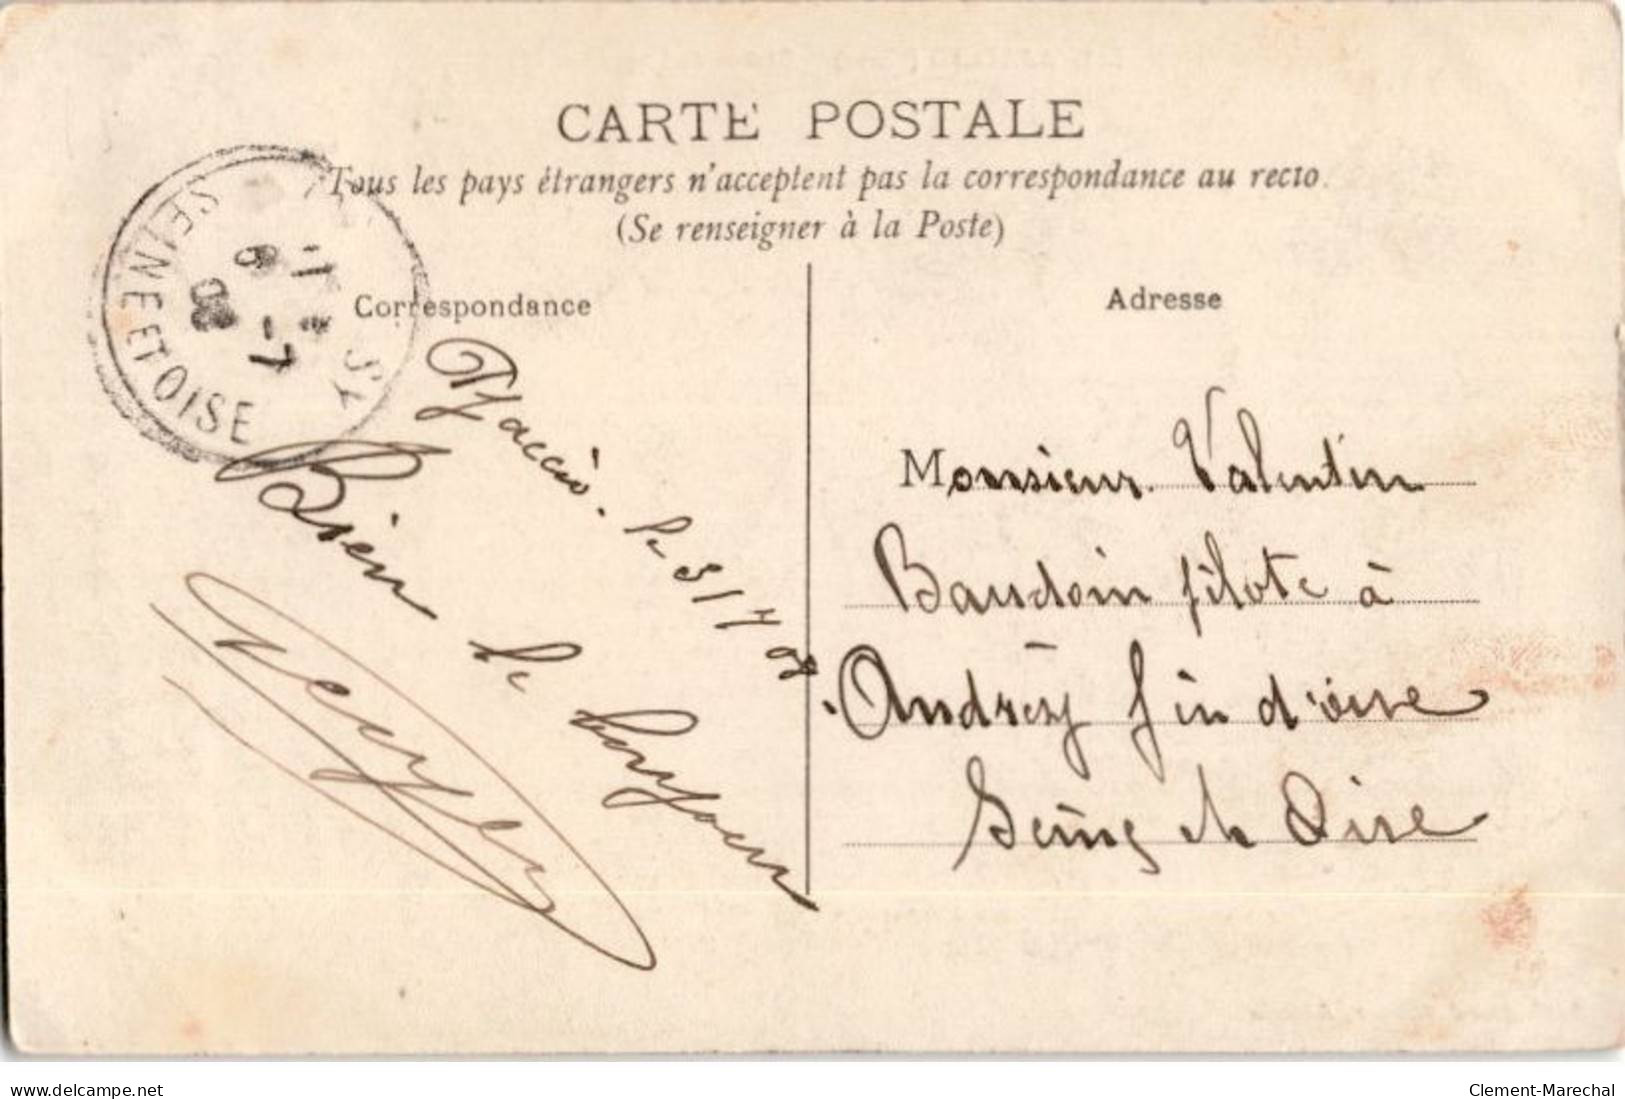 CARTE POSTALE
Tous les pays étrangers n'acceptent pas la correspondance au recto.
(Se renseigner à la Poste)
SEINE ET OISE
SY
6 -7
08
Correspondance
Adresse
le 5/7 08.
Bien le bonjour
Monsieur Valentin
Baudoin pilote à
Andrésy fin d'oise
Seine et Oise
www.delcampe.net
Clement-Marechal